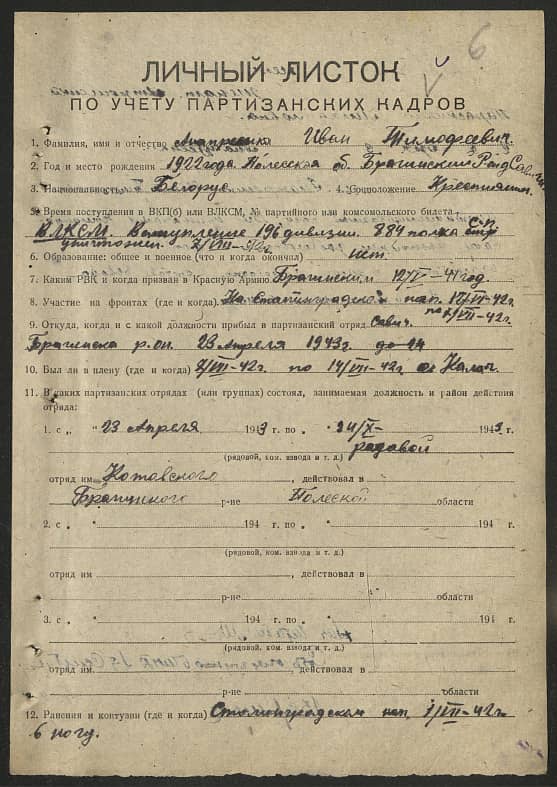 6
ЛИЧНЫЙ ЛИСТОК
ПО УЧЕТУ ПАРТИЗАНСКИХ КАДРОВ
1. Фамилия, имя и отчество Иван Тимофеевич.
2. Год и место рождения 1922 года. Полесской об. Брагинский
3. Национальность Белорус. 4. Соцположение Крестьянин.
5. Время поступления в ВКП(б) или ВЛКСМ, № партийного или комсомольского билета
ВЛКСМ. Вступление 196 дивизии. 884 полка
7/VIII-42г.
6. Образование: общее и военное (что и когда окончил) нет.
7. Каким РВК и когда призван в Красную Армию Брагинским 12/V-41 год
8. Участие на фронтах (где и когда) На нап.
по 7/VIII-42г.
9. Откуда, и с какой должности прибыл в партизанский отряд
р.он. 23 Апреля 1943г.
10. Был ли в плену (где и когда) 7/VIII-42г. по 14/VIII-42г. Калач.
11. В каких партизанских отрядах (или группах) состоял, занимаемая должность и район действия
отряда:
1. с „ 23 Апреля 1943 г. по " 24/X- 1943 г.
рядовой
(рядовой, ком. взвода и т. д.)
отряд им Котовского, действовал в
Брагинского р-не Полеской области
2. с „ " 194 г. по " 194 г.
(рядовой, ком. взвода и т. д.)
отряд им , действовал в
р-не области
3. с „ " 194 г. по " 194 г.
(рядовой, ком. взвода и т. д.)
отряд им , действовал в
р-не области
12. Ранения и контузии (где и когда) нап. 1/VII-42г.
в ногу.